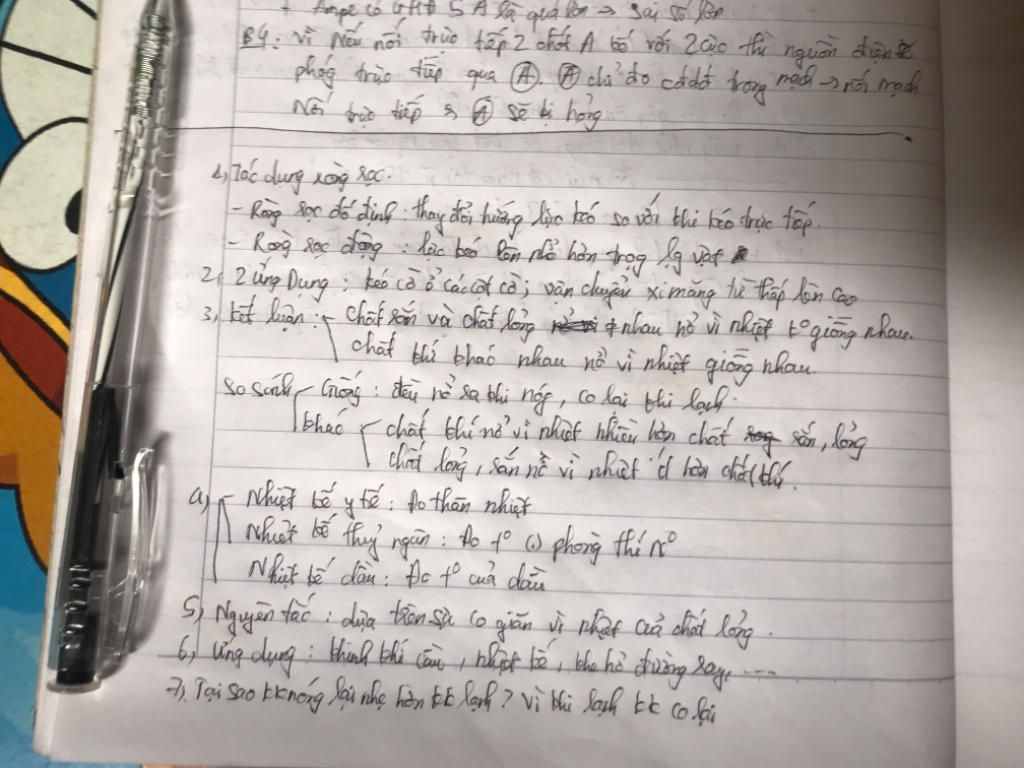 + Ampe có GHĐ 5 A là quá lớn → sai số lớn
B4: vì nếu nối trực tiếp 2 chốt A kế với 2 cực thì nguồn điện
phóng trực tiếp qua Ⓐ. Ⓐ chỉ đo cđdđ trong mạch → nối mạch
Nối trực tiếp → Ⓐ sẽ bị hỏng
1, Tác dụng ròng rọc.
- Ròng rọc cố định : thay đổi hướng lực kéo so với khi kéo trực tiếp.
- Ròng rọc động : lực kéo lên nhỏ hơn trọg lg vật
2, 2 ứng Dụng : kéo cờ ở các cột cờ ; vận chuyển xi măng từ thấp lên cao
3, kết luận : - chất rắn và chất lỏng ≠ nhau nở vì nhiệt t° giống nhau.
chất khí khác nhau nở vì nhiệt giống nhau.
so sánh - Giống : đều nở ra khi nóg, co lại khi lạnh.
khác - chất khí nở vì nhiệt nhiều hơn chất rắn, lỏng
chất lỏng, rắn nở vì nhiệt ít hơn chất khí.
4, - Nhiệt kế y tế : Đo thân nhiệt
Nhiệt kế thuỷ ngân : Đo t° phòng thí n°
Nhiệt kế dầu : Đo t° của dầu
5, Nguyên tắc : dựa trên sự co giãn vì nhiệt của chất lỏng.
6, Ứng dụng : khinh khí cầu, nhiệt kế, khe hở đường ray, ....
7, Tại sao kk nóng lại nhẹ hơn kk lạnh ? Vì khi lạnh kk co lại